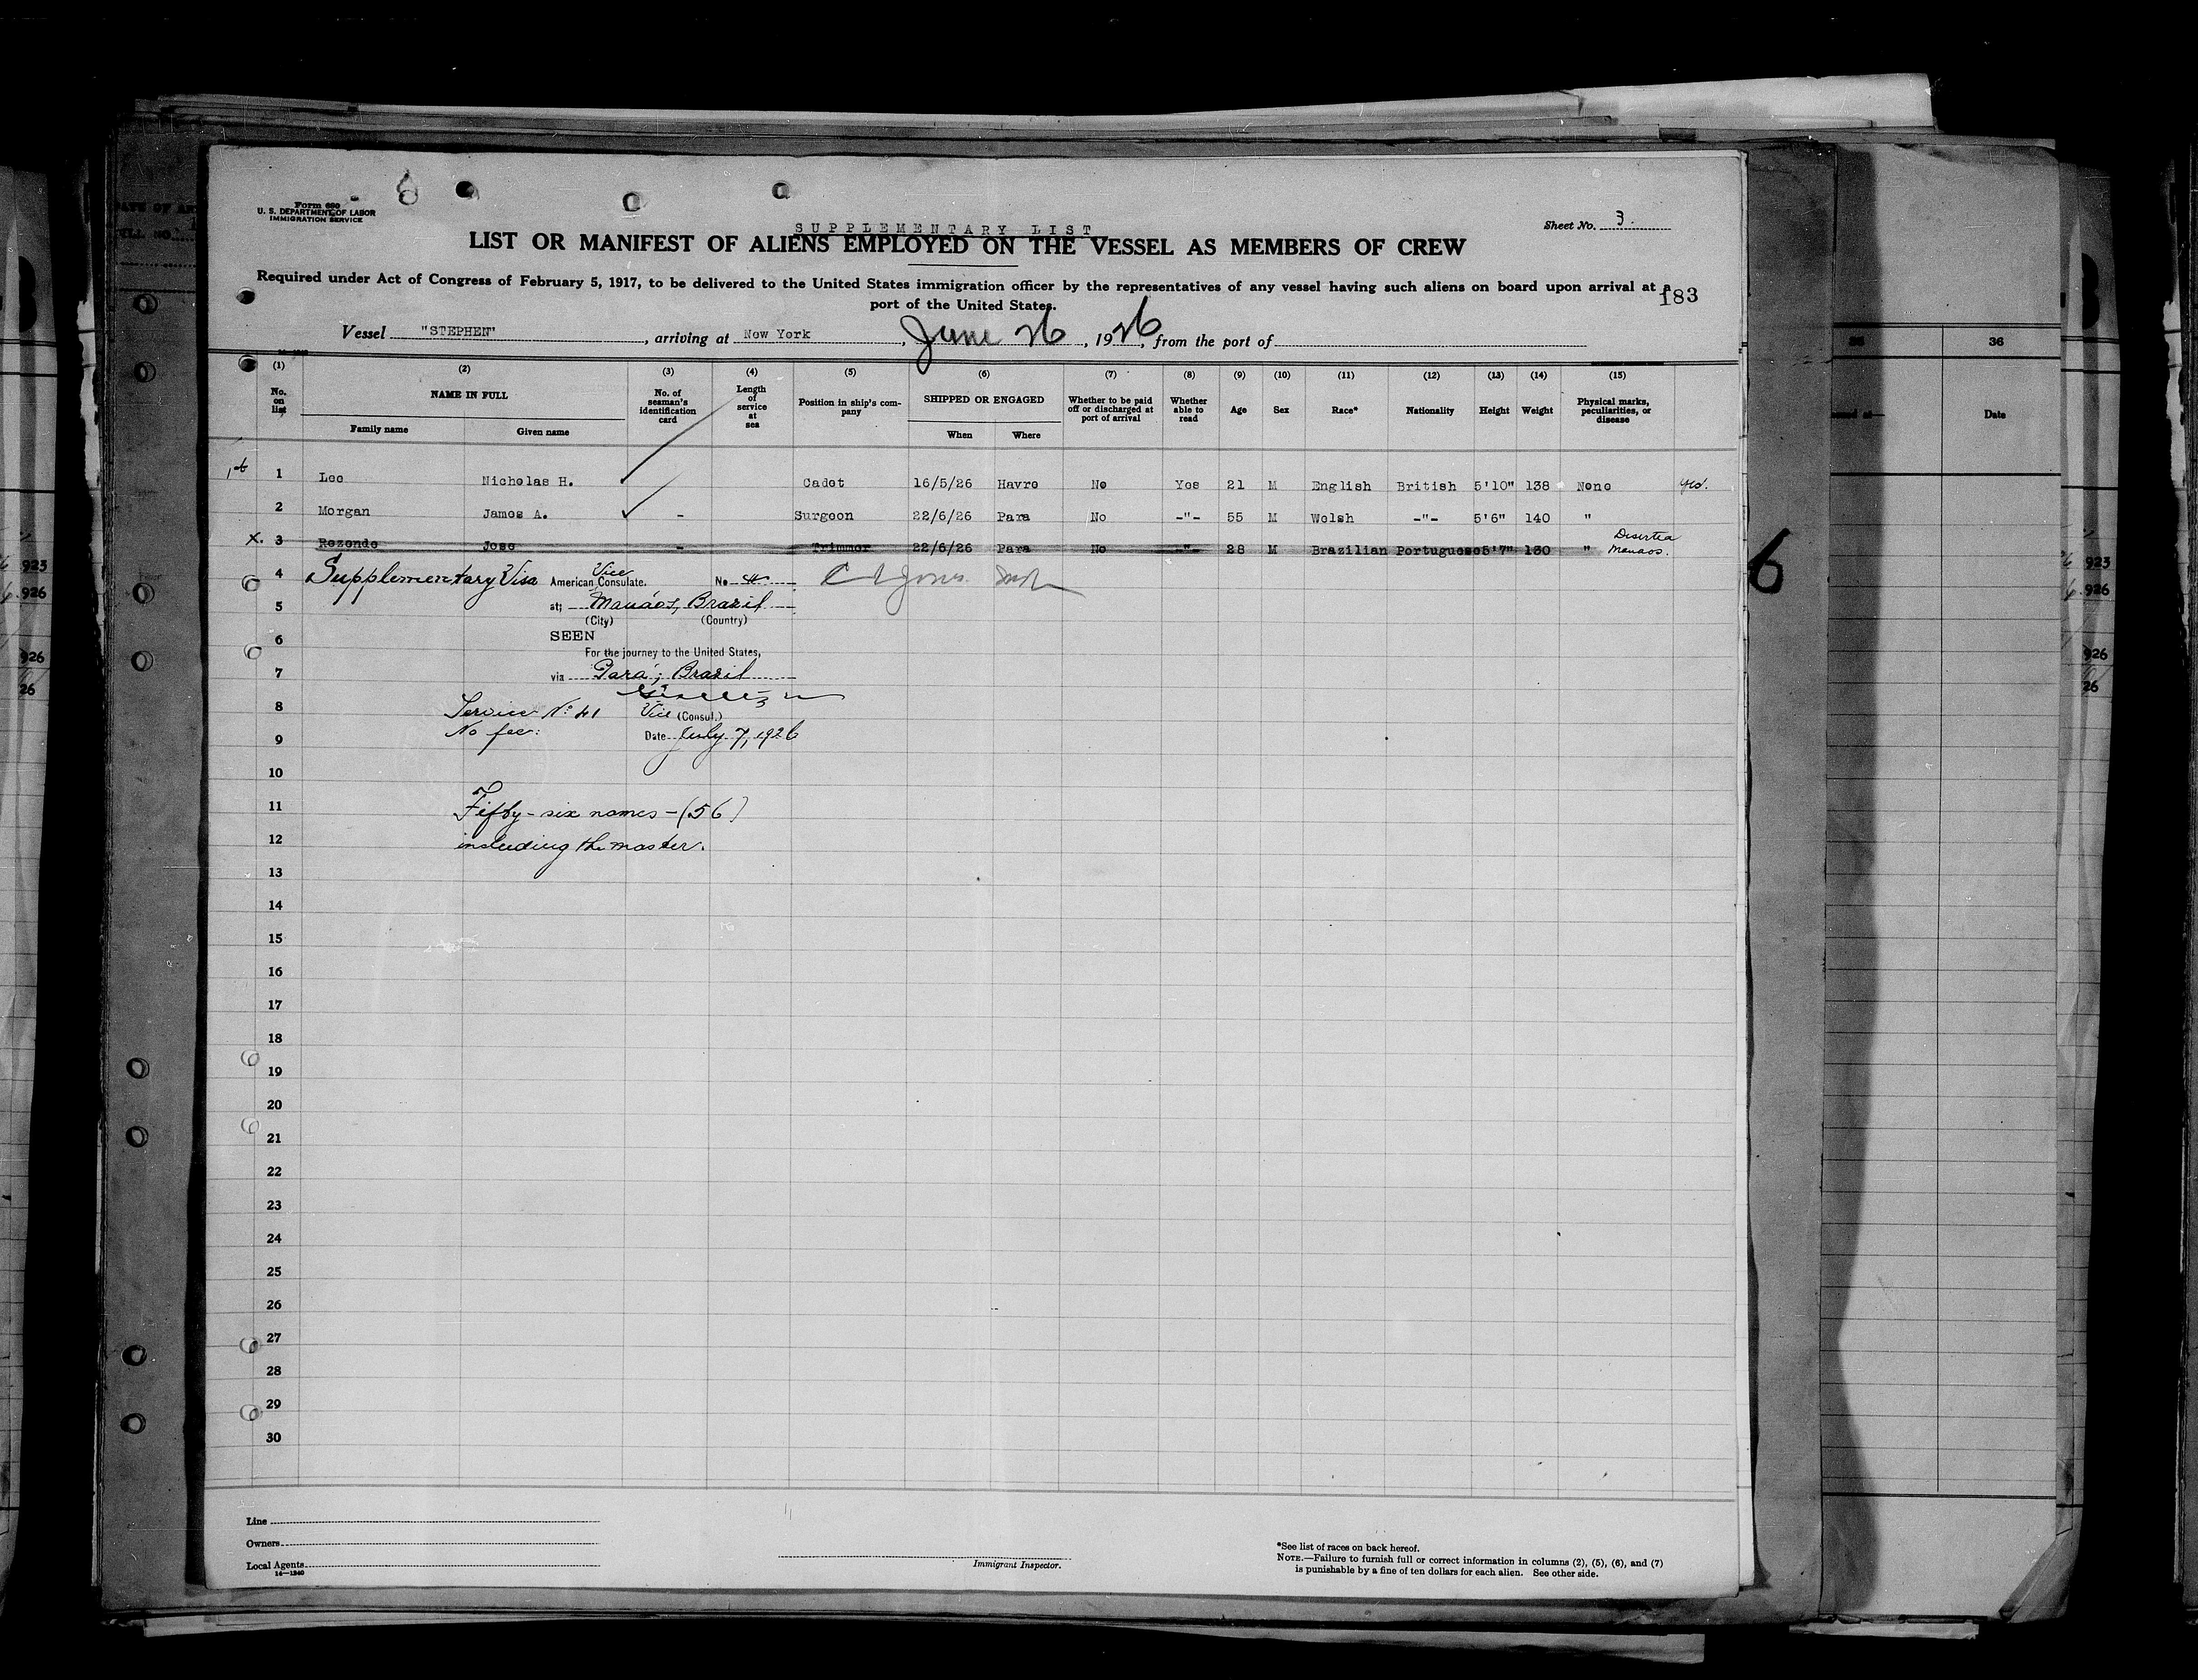 Form 680
U. S. DEPARTMENT OF LABOR
IMMIGRATION SERVICE
SUPPLEMENTARY LIST
Sheet No. 3.
LIST OR MANIFEST OF ALIENS EMPLOYED ON THE VESSEL AS MEMBERS OF CREW
Required under Act of Congress of February 5, 1917, to be delivered to the United States immigration officer by the representatives of any vessel having such aliens on board upon arrival at a
port of the United States.
183
Vessel "STEPHEN", arriving at New York, June 26, 1926, from the port of
(1) (2) (3) (4) (5) (6) (7) (8) (9) (10) (11) (12) (13) (14) (15)
No. on list NAME IN FULL Family name Given name No. of seaman's identification card Length of service at sea Position in ship's company SHIPPED OR ENGAGED When Where Whether to be paid off or discharged at port of arrival Whether able to read Age Sex Race* Nationality Height Weight Physical marks, peculiarities, or disease
1 Lee Nicholas H. Cadet 16/5/26 Havre No Yes 21 M English British 5'10" 138 None
2 Morgan James A. - Surgeon 22/6/26 Para No -"- 55 M Welsh -"- 5'6" 140 "
x. 3 Rezende Jose - Trimmer 22/6/26 Para No -"- 28 M Brazilian Portuguese 5'7" 130 " Manaos.
4 Supplementary Visa Vice American Consulate. No
5 at; Manáos, Brazil
(City) (Country)
6 SEEN
For the journey to the United States,
7 via Pará; Brazil
8 Service No. 41 Vice (Consul.)
9 No fee: Date July 7, 1926
10
11 Fifty-six names - (56)
12 including the master.
13
14
15
16
17
18
19
20
21
22
23
24
25
26
27
28
29
30
Line
Owners
Local Agents
14—1240
Immigrant Inspector.
*See list of races on back hereof.
NOTE.—Failure to furnish full or correct information in columns (2), (5), (6), and (7)
is punishable by a fine of ten dollars for each alien. See other side.
6
36
Date